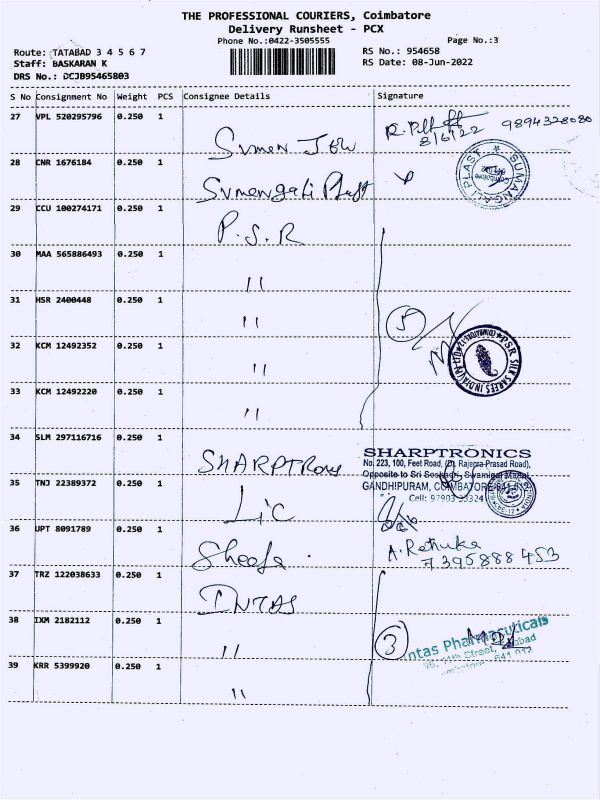 THE PROFESSIONAL COURIERS, Coimbatore
Delivery Runsheet - PCX
Phone No.:0422-3505555
Page No.:3
Route: TATABAD 3 4 5 6 7
RS No.: 954658
Staff: BASKARAN K
RS Date: 08-Jun-2022
DRS No.: DCJB95465803
S No Consignment No Weight PCS Consignee Details Signature
27 VPL 520295796 0.250 1 8/6/22 9894328080
28 CNR 1676184 0.250 1 Sumangali Plast SUMANGALI PLAST
29 CCU 100274171 0.250 1 P.S.R
30 MAA 565886493 0.250 1 11
31 HSR 2400448 0.250 1 11 5
32 KCM 12492352 0.250 1 11 PSR SILK SAREES INDIA (P) LTD
33 KCM 12492220 0.250 1 11
34 SLM 297116716 0.250 1 SHARPTRONS SHARPTRONICS
No. 223, 100, Feet Road, (Dr. Rajepra-Prasad Road),
Opposite to Sri
GANDHIPURAM, COIMBATORE
Cell: 97903
35 TNJ 22389372 0.250 1 LiC
36 UPT 8091789 0.250 1 Sheefa A. Renuka
7395888453
37 TRZ 122038633 0.250 1 INTAS
38 IXM 2182112 0.250 1 11 3 ntas Pharmaceuticals
39 KRR 5399920 0.250 1 11